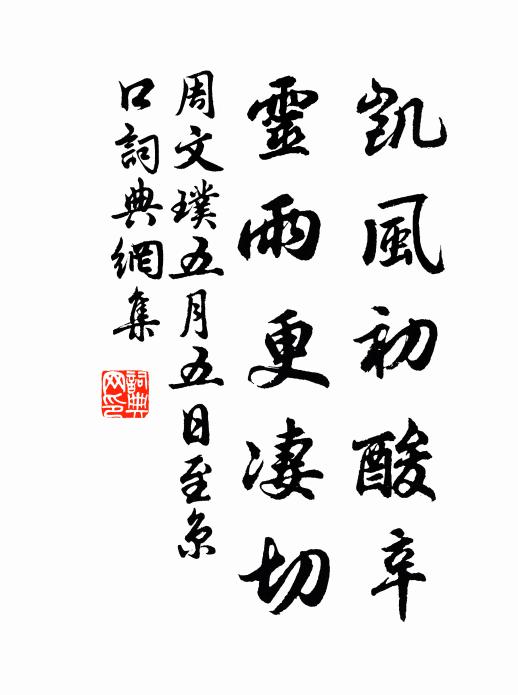 凱風初酸辛
靈雨更淒切
周文璞五月五日至京
口詞典網集
詞典
网印